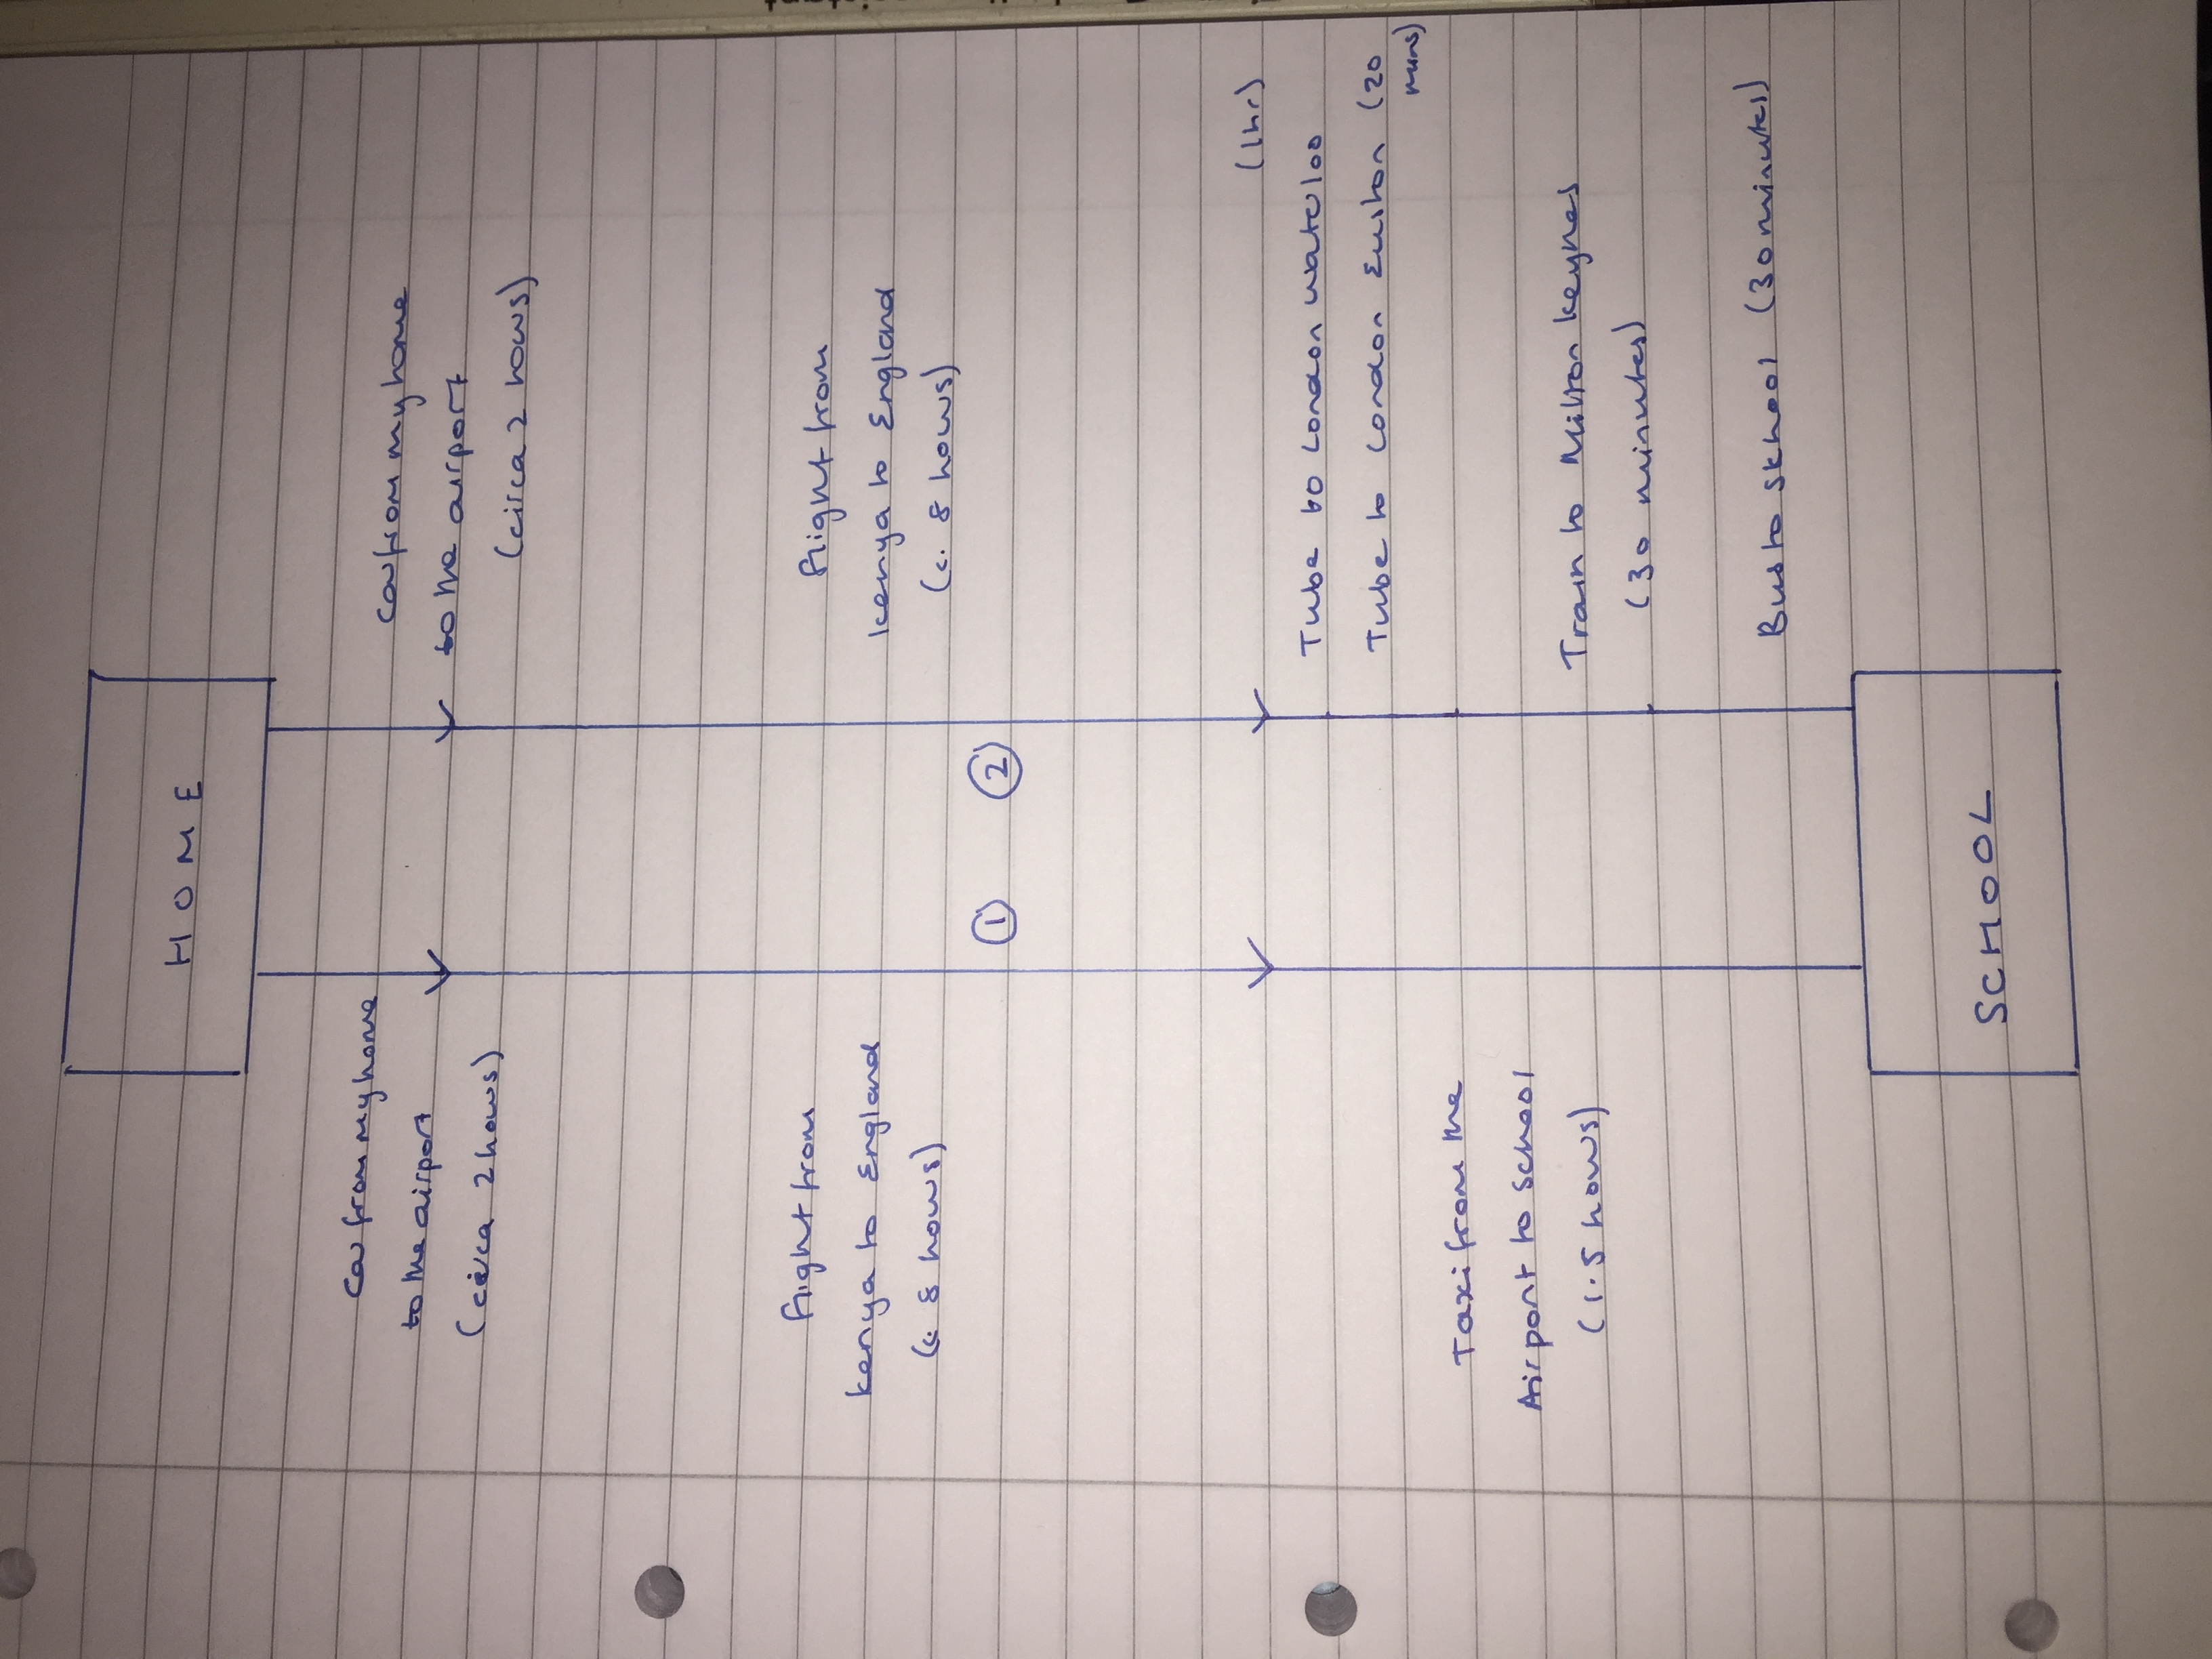 HOME
Car from my home
to the airport
(circa 2 hours)
Car from my home
to the airport
(circa 2 hours)
flight from
kenya to England
(c. 8 hours)
flight from
kenya to England
(c. 8 hours)
1
2
Taxi from the
Airport to school
(1.5 hours)
(1hr)
Tube to London waterloo
Tube to London Euston (20
mins)
Train to Milton keynes
(30 minutes)
Bus to skhool (30 minutes)
SCHOOL